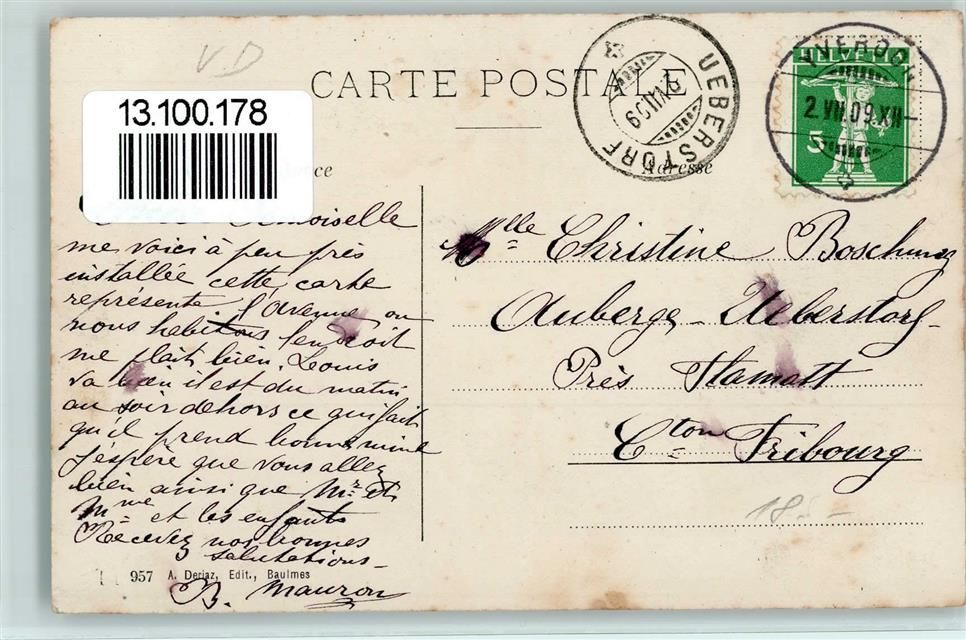 VD
CARTE POSTALE
13.100.178
UEBERSTORF
2.VII.09
YVERDON
2.VII.09.XII
HELVETIA
5
Adresse
moiselle
me voici à peu près
installée cette carte
représente l'avenue ou
nous habitons l'endroit
me plait bien. Louis
va bien il est du matin
au soir dehors ce qui fait
qu'il prend bonne mine
J'espère que vous allez
bien ainsi que Mr et
Mme et les enfants
Recevez nos bonnes
salutations
B. Mauron
Mlle Christine Boschung
Auberge Ueberstorf
Près Flamatt
Cton Fribourg
18.-
957 A. Deriaz, Edit., Baulmes